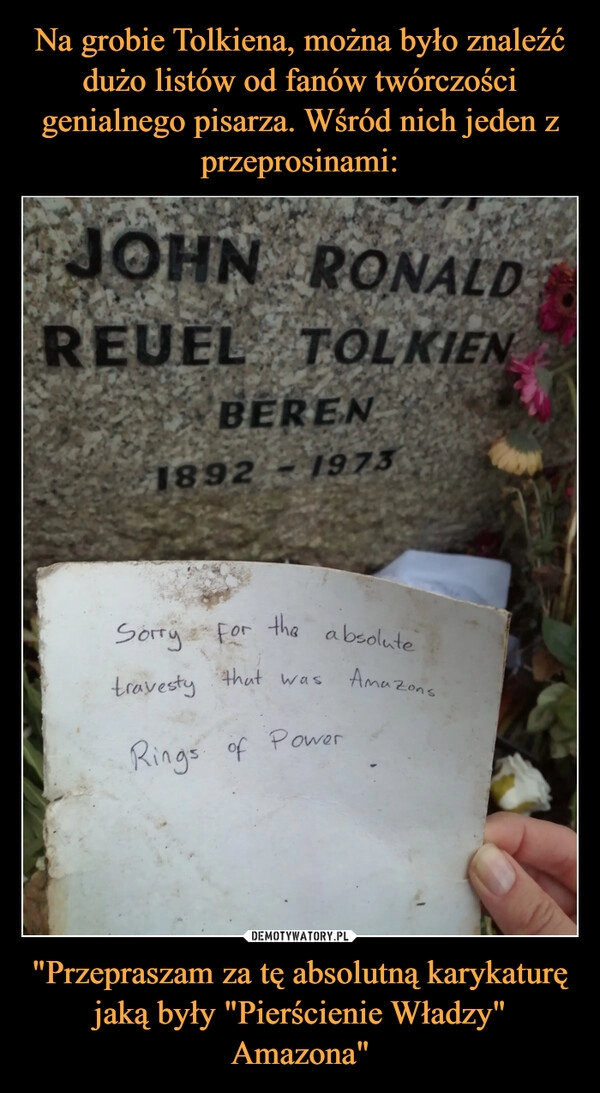 Na grobie Tolkiena, można było znaleźć
dużo listów od fanów twórczości
genialnego pisarza. Wśród nich jeden z
przeprosinami:
JOHN RONALD
REUEL TOLKIEN
BEREN
1892 - 1973
Sorry For the absolute
travesty that was Amazons
Rings of Power
DEMOTYWATORY.PL
"Przepraszam za tę absolutną karykaturę
jaką były "Pierścienie Władzy"
Amazona"